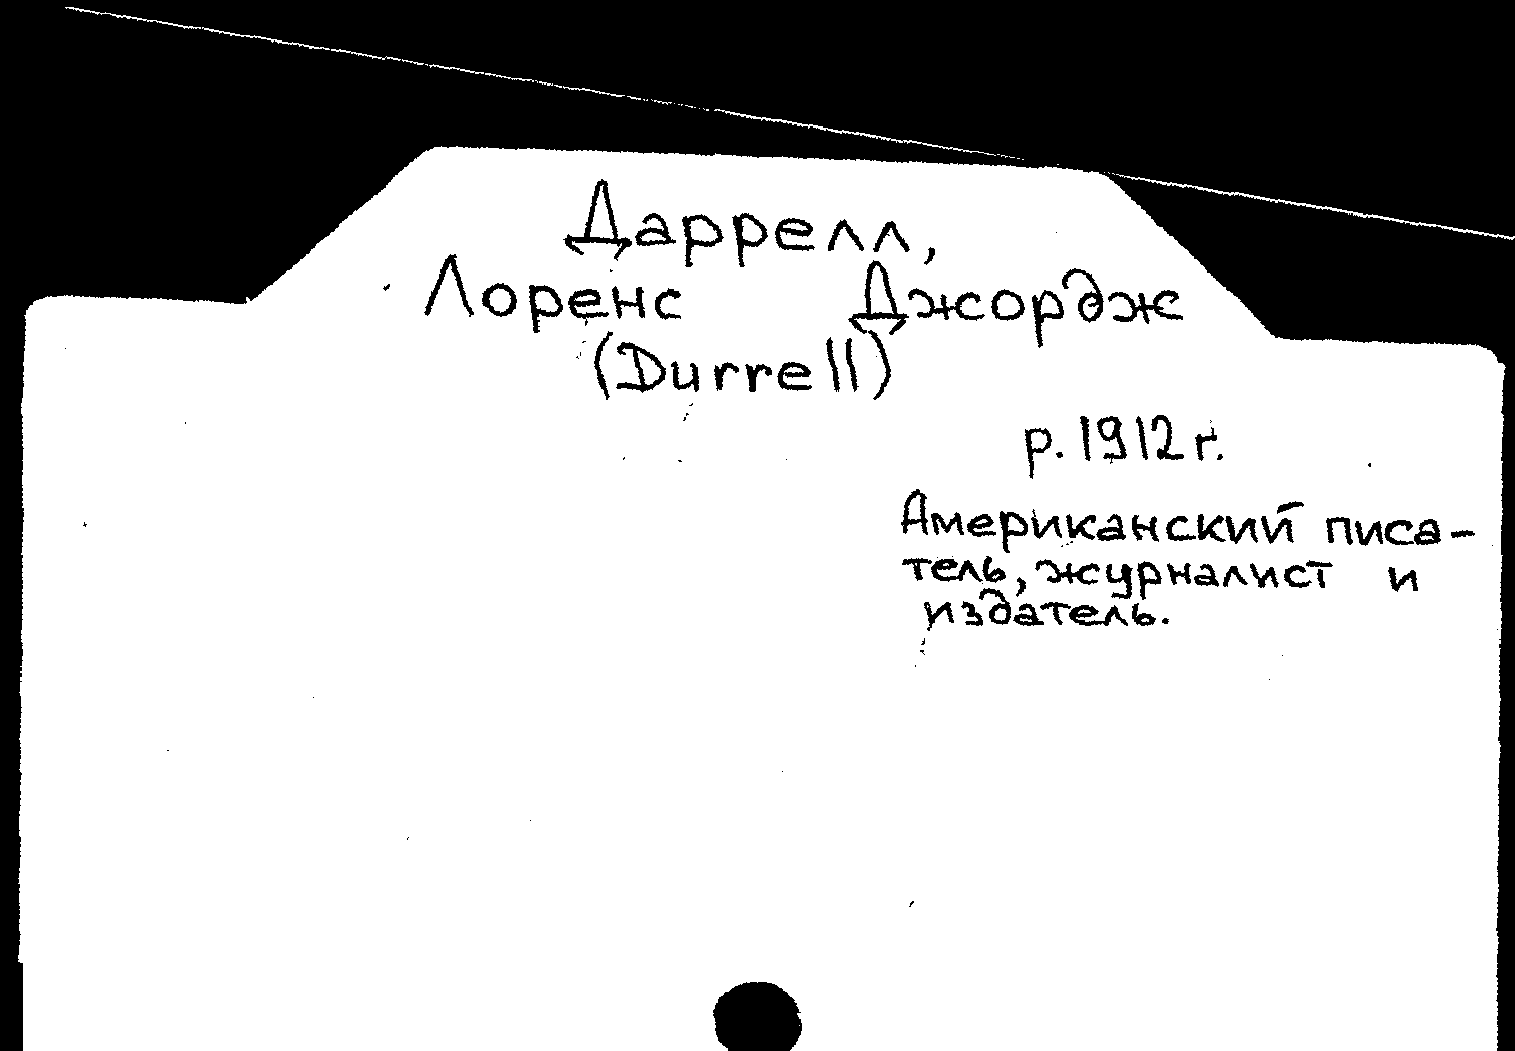 Даррелл,
Лоренс Джордж
(Durrell)
р. 1912 г.
Американский писа-
тель, журналист и
издатель.